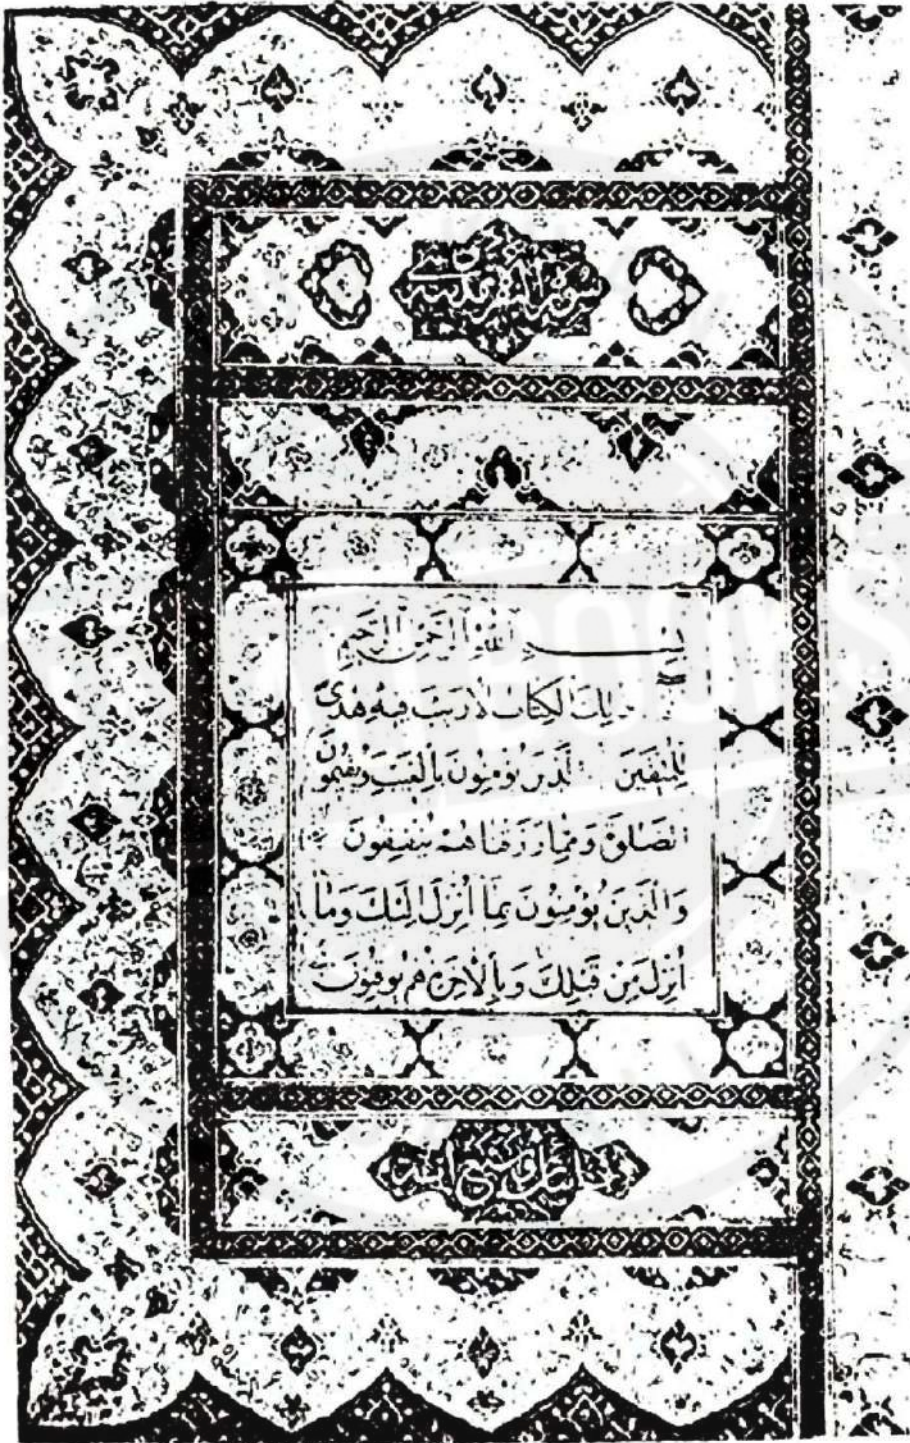 سورة البقرة مدنية
بِسْمِ اللهِ الرَّحْمٰنِ الرَّحِيمِ
ذلِكَ الْكِتَابُ لَا رَيْبَ فِيهِ هُدًى
لِلْمُتَّقِينَ الَّذِينَ يُؤْمِنُونَ بِالْغَيْبِ وَيُقِيمُونَ
الصَّلٰوةَ وَمِمَّا رَزَقْنَاهُمْ يُنْفِقُونَ
وَالَّذِينَ يُؤْمِنُونَ بِمَا أُنْزِلَ إِلَيْكَ وَمَا
أُنْزِلَ مِنْ قَبْلِكَ وَبِالْاٰخِرَةِ هُمْ يُوقِنُونَ